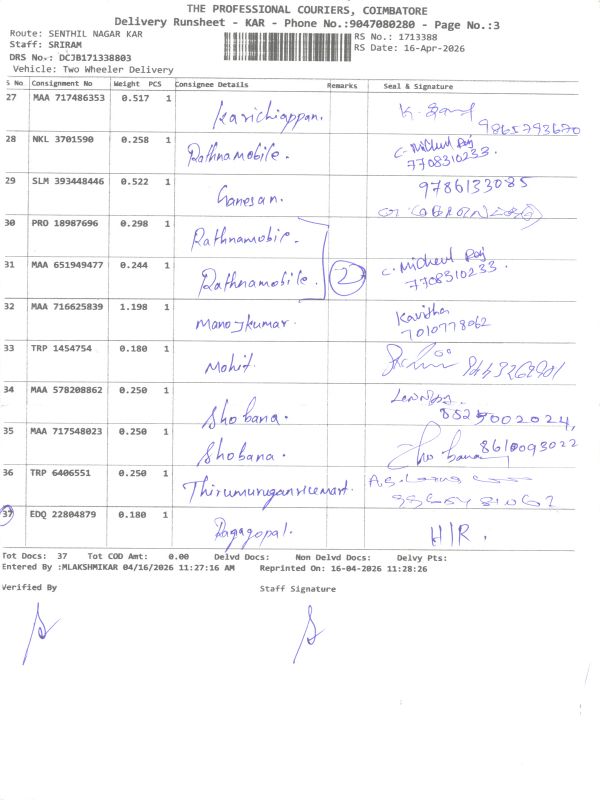 THE PROFESSIONAL COURIERS, COIMBATORE
Delivery Runsheet - KAR - Phone No.:9047080280 - Page No.:3
Route: SENTHIL NAGAR KAR
RS No.: 1713388
Staff: SRIRAM
RS Date: 16-Apr-2026
DRS No.: DCJB171338803
Vehicle: Two Wheeler Delivery
S No Consignment No Weight PCS Consignee Details Remarks Seal & Signature
27 MAA 717486353 0.517 1 Karichiappan. K. 9865793670
28 NKL 3701590 0.258 1 Rathnamobile. C. Micheal Raj
7708310233.
29 SLM 393448446 0.522 1 Ganesan. 9786133085
30 PRO 18987696 0.298 1 Rathnamobile.
31 MAA 651949477 0.244 1 Rathnamobile. 2 C. Micheal Raj
7708310233.
32 MAA 716625839 1.198 1 Manojkumar. Kavitha
7010778062
33 TRP 1454754 0.180 1 Mohit.
34 MAA 578208862 0.250 1 Shobana. 8525002024,
35 MAA 717548023 0.250 1 Shobana. Shobana 8610093022
36 TRP 6406551 0.250 1 Thirumuruganricemart.
37 EDQ 22804879 0.180 1 Ragagopal. HIR.
Tot Docs: 37 Tot COD Amt: 0.00 Delvd Docs: Non Delvd Docs: Delvy Pts:
Entered By :MLAKSHMIKAR 04/16/2026 11:27:16 AM Reprinted On: 16-04-2026 11:28:26
Verified By Staff Signature